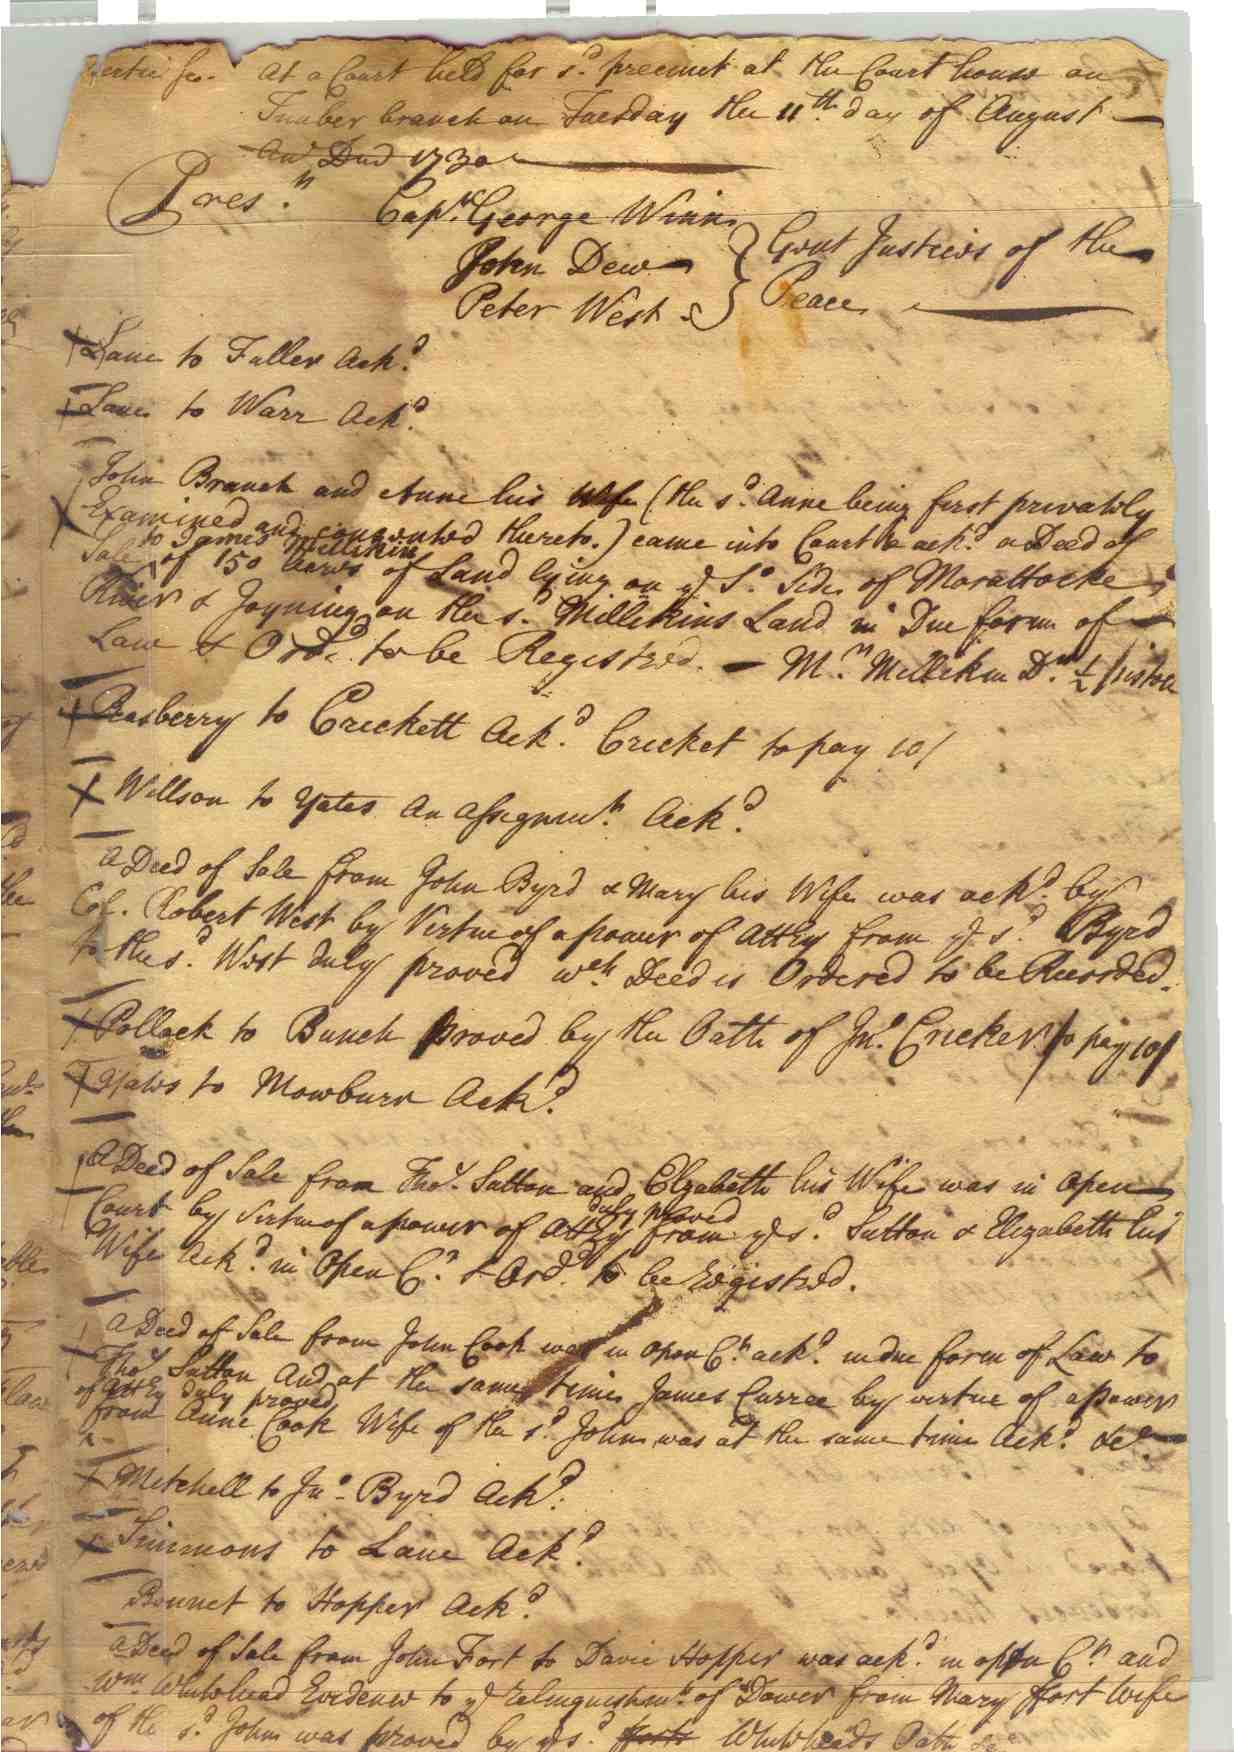 Bertie Sc. At a Court held for sd. precinct at the Court house on
Timber branch on Tuesday the 11th. day of August
Ano Dnd 1730
Presn. Capt. George Winn
John Dew } Gent Justices of the
Peter West } Peace
Lane to Fuller Ackd.
Lane to Warr Ackd.
John Branch and Anne his Wife (the sd. Anne being first privatly
Examined and consented thereto.) came into Court & ackd. a Deed of
to James Millikin
Sale of 150 Acres of Land lying on ye So. Side of Morattocke
River & Joyning on the sd. Millikins Land in Due form of
Law & Ordd. to be Registred. - Mr. Millikin Dr. 1/2 pistole
Rasberry to Crickett Ackd. Cricket to pay 10/
Willson to Yates An Assignmt. Ackd.
A Deed of Sale from John Byrd & Mary his Wife was ackd. by
Col. Robert West by Virtue of a power of Attry from ye sd. Byrd
to the sd. West duly proved wch. Deed is Ordered to be Recorded.
Pollock to Bunch proved by the Oath of Jno. Cricket / to pay 10/
Yates to Mowburn Ackd.
A Deed of Sale from Thos. Sutton and Elzabeth his Wife was in open
Court by Virtue of a power of Attry duly proved from ye sd. Sutton & Elizabeth his
Wife Ackd. in Open Ct. & Ord. to be Registred.
A Deed of Sale from John Cook was in open Ct. ackd. in due form of Law to
Thos. Sutton And at the same time James Curree by virtue of a power
of Attry duly proved
from Anne Cook Wife of the sd. John was at the same time Ackd. &c
Mitchell to Jno. Byrd Ackd.
Simmons to Lane Ackd.
Bonnet to Hopper Ackd.
A Deed of Sale from John Fort to Davie Hopper was ackd. in open Ct. and
Wm. Whitehead Evidence to ye Relinquishmt. of Dower from Mary ffort Wife
of the sd. John was proved by ye sd. fforts Whiteheads Oath